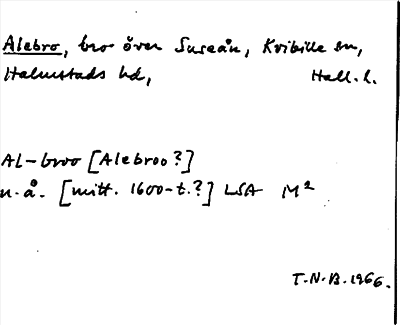 Alebro, bro över Suseån, Kvibille sn,
Halmstads hd, Hall. l.
Al-broo [Alebroo?]
u.å. [mitt. 1600-t.?] LSA M²
T.N.B. 1966.